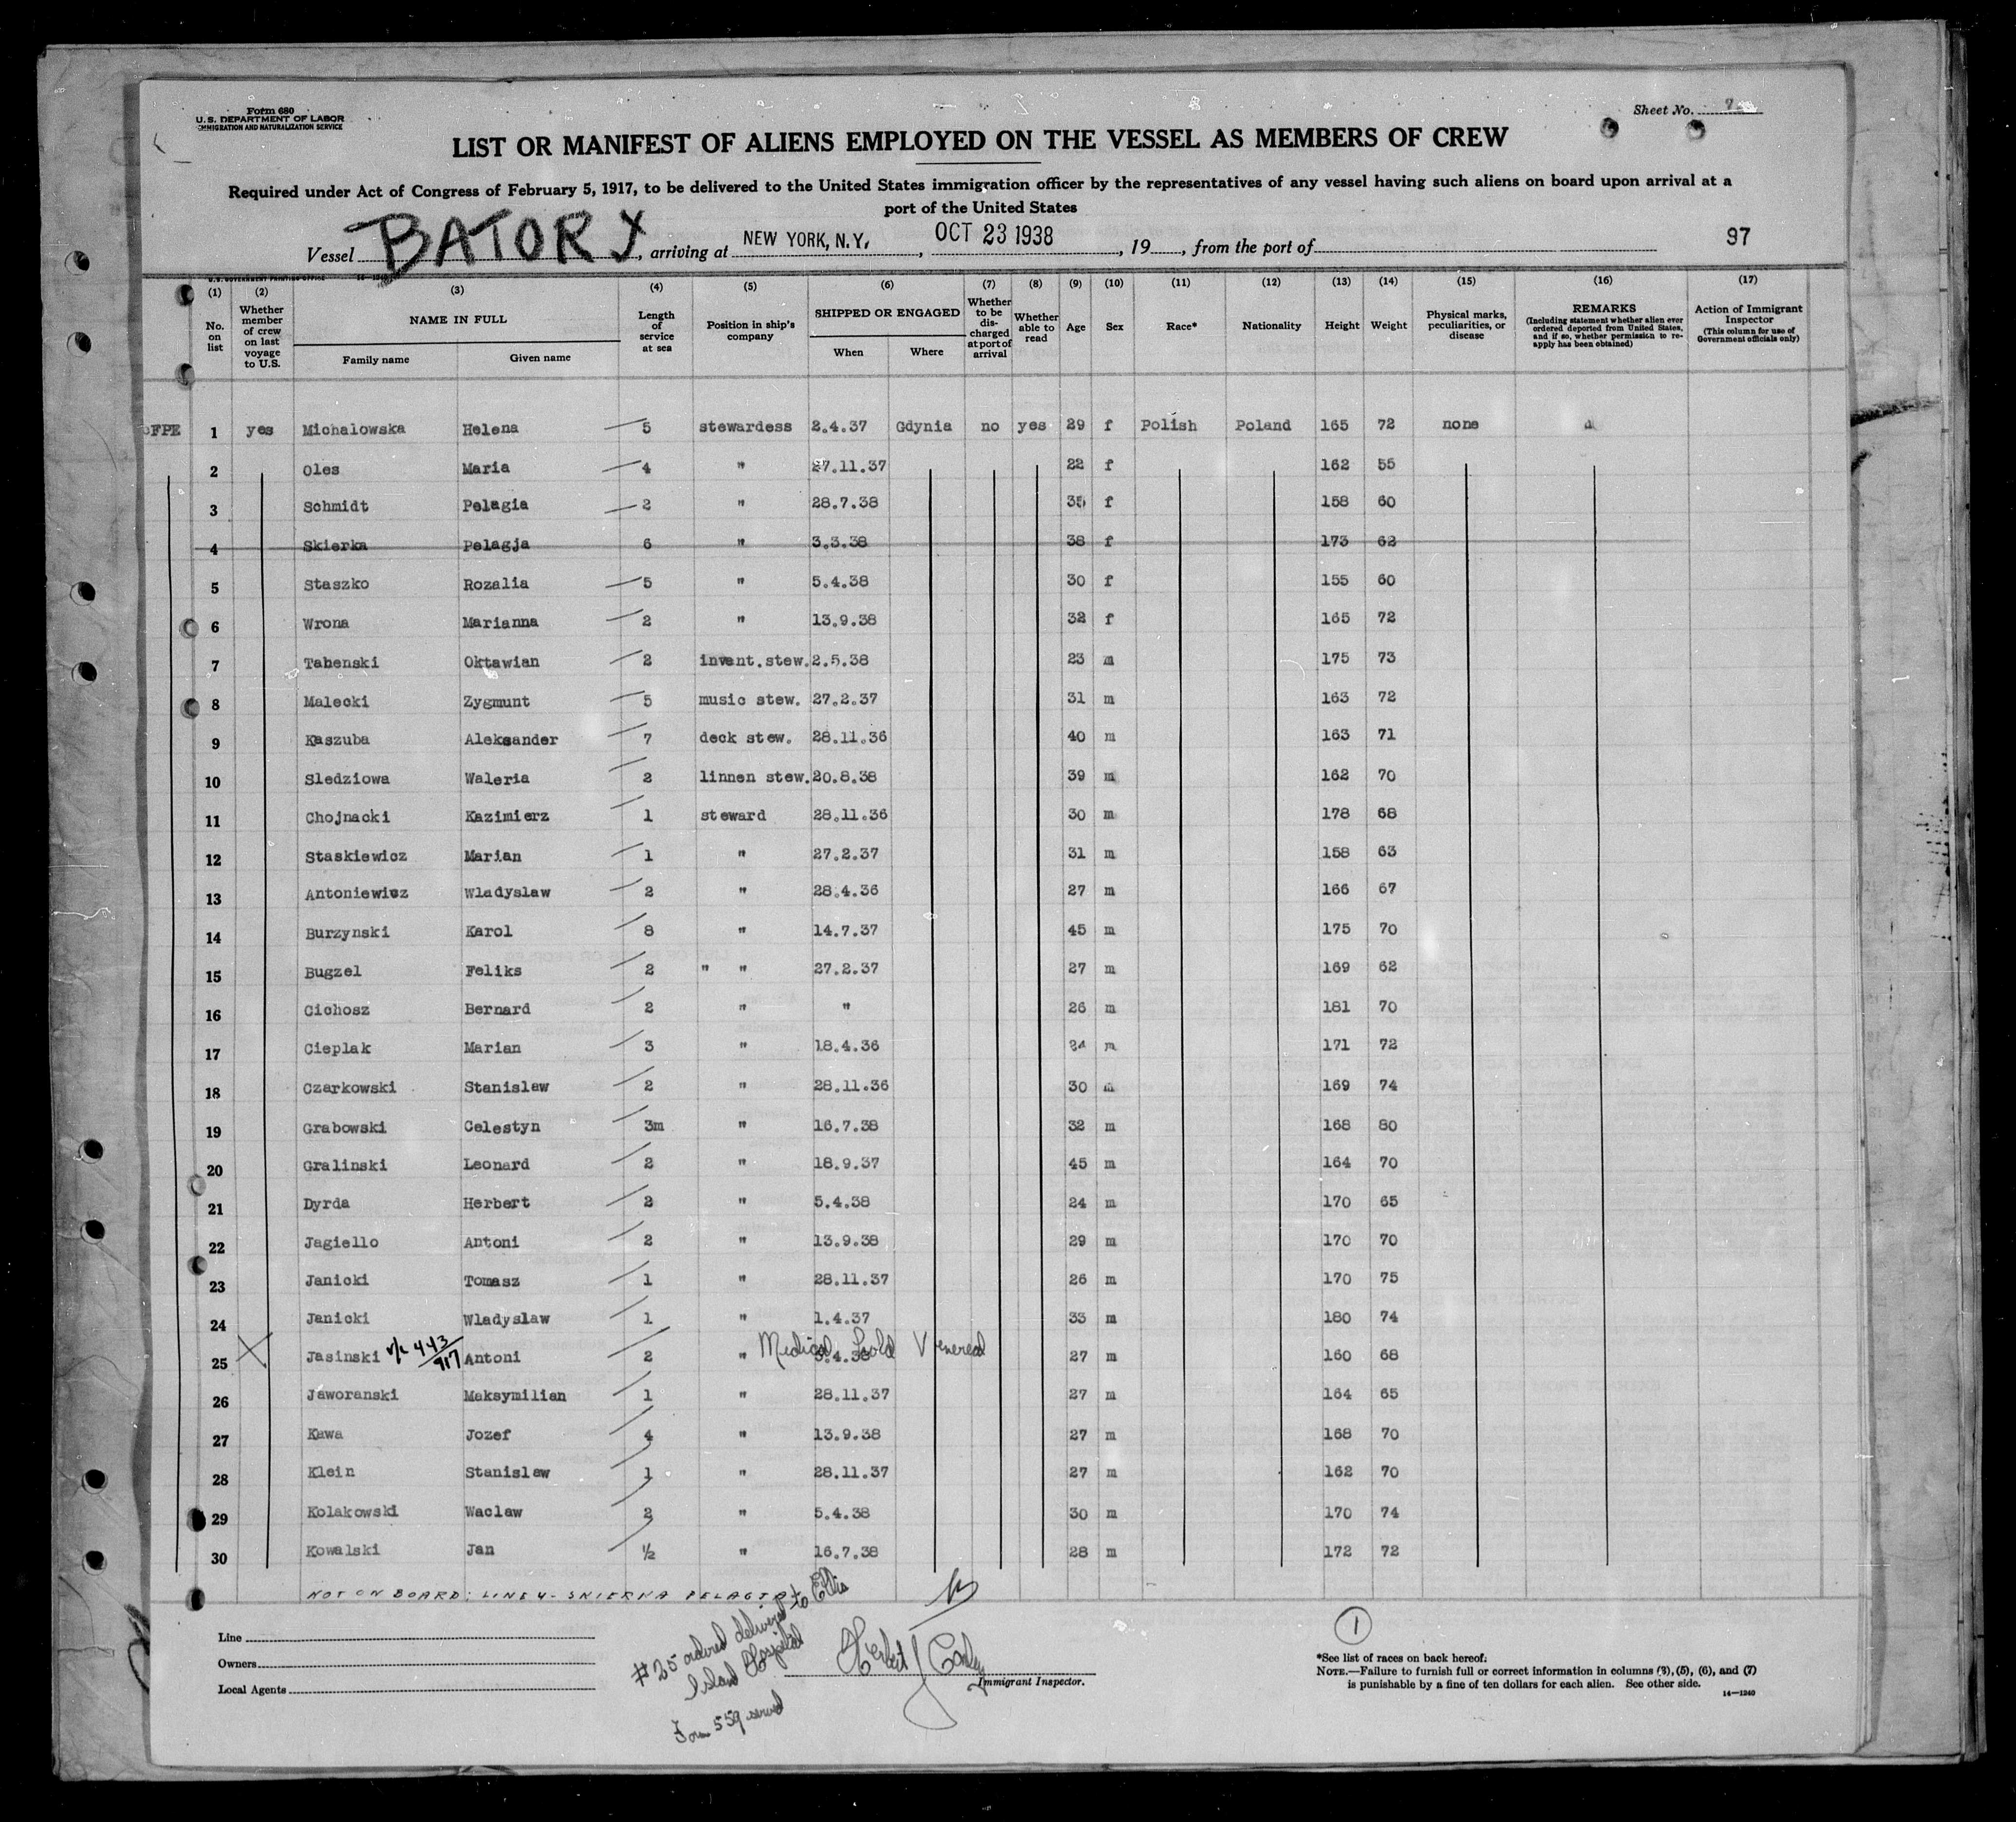 Form 680
U.S. DEPARTMENT OF LABOR
IMMIGRATION AND NATURALIZATION SERVICE
Sheet No. 7
LIST OR MANIFEST OF ALIENS EMPLOYED ON THE VESSEL AS MEMBERS OF CREW
Required under Act of Congress of February 5, 1917, to be delivered to the United States immigration officer by the representatives of any vessel having such aliens on board upon arrival at a
port of the United States
Vessel BATORY, arriving at NEW YORK, N.Y., OCT 23 1938, 19, from the port of 97
U.S. GOVERNMENT PRINTING OFFICE
(1) (2) (3) (4) (5) (6) (7) (8) (9) (10) (11) (12) (13) (14) (15) (16) (17)
No. on list
Whether member of crew on last voyage to U.S.
NAME IN FULL
Family name Given name
Length of service at sea
Position in ship's company
SHIPPED OR ENGAGED
When Where
Whether to be discharged at port of arrival
Whether able to read
Age
Sex
Race*
Nationality
Height
Weight
Physical marks, peculiarities, or disease
REMARKS
(Including statement whether alien ever ordered deported from United States, and if so, whether permission to re-apply has been obtained)
Action of Immigrant Inspector
(This column for use of Government officials only)
FPE 1 yes Michalowska Helena 5 stewardess 2.4.37 Gdynia no yes 29 f Polish Poland 165 72 none
2 Oles Maria 4 " 27.11.37 22 f 162 55
3 Schmidt Pelagia 2 " 28.7.38 35 f 158 60
4 Skierka Pelagja 6 " 3.3.38 38 f 173 62
5 Staszko Rozalia 5 " 5.4.38 30 f 155 60
6 Wrona Marianna 2 " 13.9.38 32 f 165 72
7 Tabenski Oktawian 2 invent.stew. 2.5.38 23 m 175 73
8 Malecki Zygmunt 5 music stew. 27.2.37 31 m 163 72
9 Kaszuba Aleksander 7 deck stew. 28.11.36 40 m 163 71
10 Sledziowa Waleria 2 linnen stew. 20.8.38 39 m 162 70
11 Chojnacki Kazimierz 1 steward 28.11.36 30 m 178 68
12 Staskiewicz Marian 1 " 27.2.37 31 m 158 63
13 Antoniewicz Wladyslaw 2 " 28.4.36 27 m 166 67
14 Burzynski Karol 8 " 14.7.37 45 m 175 70
15 Bugzel Feliks 2 " " 27.2.37 27 m 169 62
16 Cichosz Bernard 2 " " 26 m 181 70
17 Cieplak Marian 3 " 18.4.36 24 m 171 72
18 Czarkowski Stanislaw 2 " 28.11.36 30 m 169 74
19 Grabowski Celestyn 3m " 16.7.38 32 m 168 80
20 Gralinski Leonard 2 " 18.9.37 45 m 164 70
21 Dyrda Herbert 2 " 5.4.38 24 m 170 65
22 Jagiello Antoni 2 " 13.9.38 29 m 170 70
23 Janicki Tomasz 1 " 28.11.37 26 m 170 75
24 Janicki Wladyslaw 1 " 1.4.37 33 m 180 74
Medical Hold Venereal
25 Jasinski 443/917 Antoni 2 " 5.4.38 27 m 160 68
26 Jaworanski Maksymilian 1 " 28.11.37 27 m 164 65
27 Kawa Jozef 4 " 13.9.38 27 m 168 70
28 Klein Stanislaw 1 " 28.11.37 27 m 162 70
29 Kolakowski Waclaw 2 " 5.4.38 30 m 170 74
30 Kowalski Jan ½ " 16.7.38 28 m 172 72
NOT ON BOARD: LINE 4 - SKIERKA PELAGIA
#25 ordered delivered to Ellis
Island Hospital
Form 559 served
Line
Owners
Local Agents
Immigrant Inspector.
1
*See list of races on back hereof.
NOTE.—Failure to furnish full or correct information in columns (3), (5), (6), and (7)
is punishable by a fine of ten dollars for each alien. See other side.
14—1240